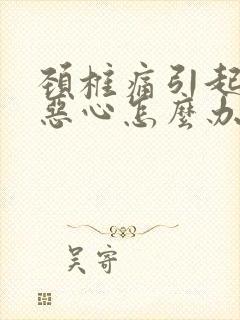 頚椎痛引起
惡心怎麼办
吴寄